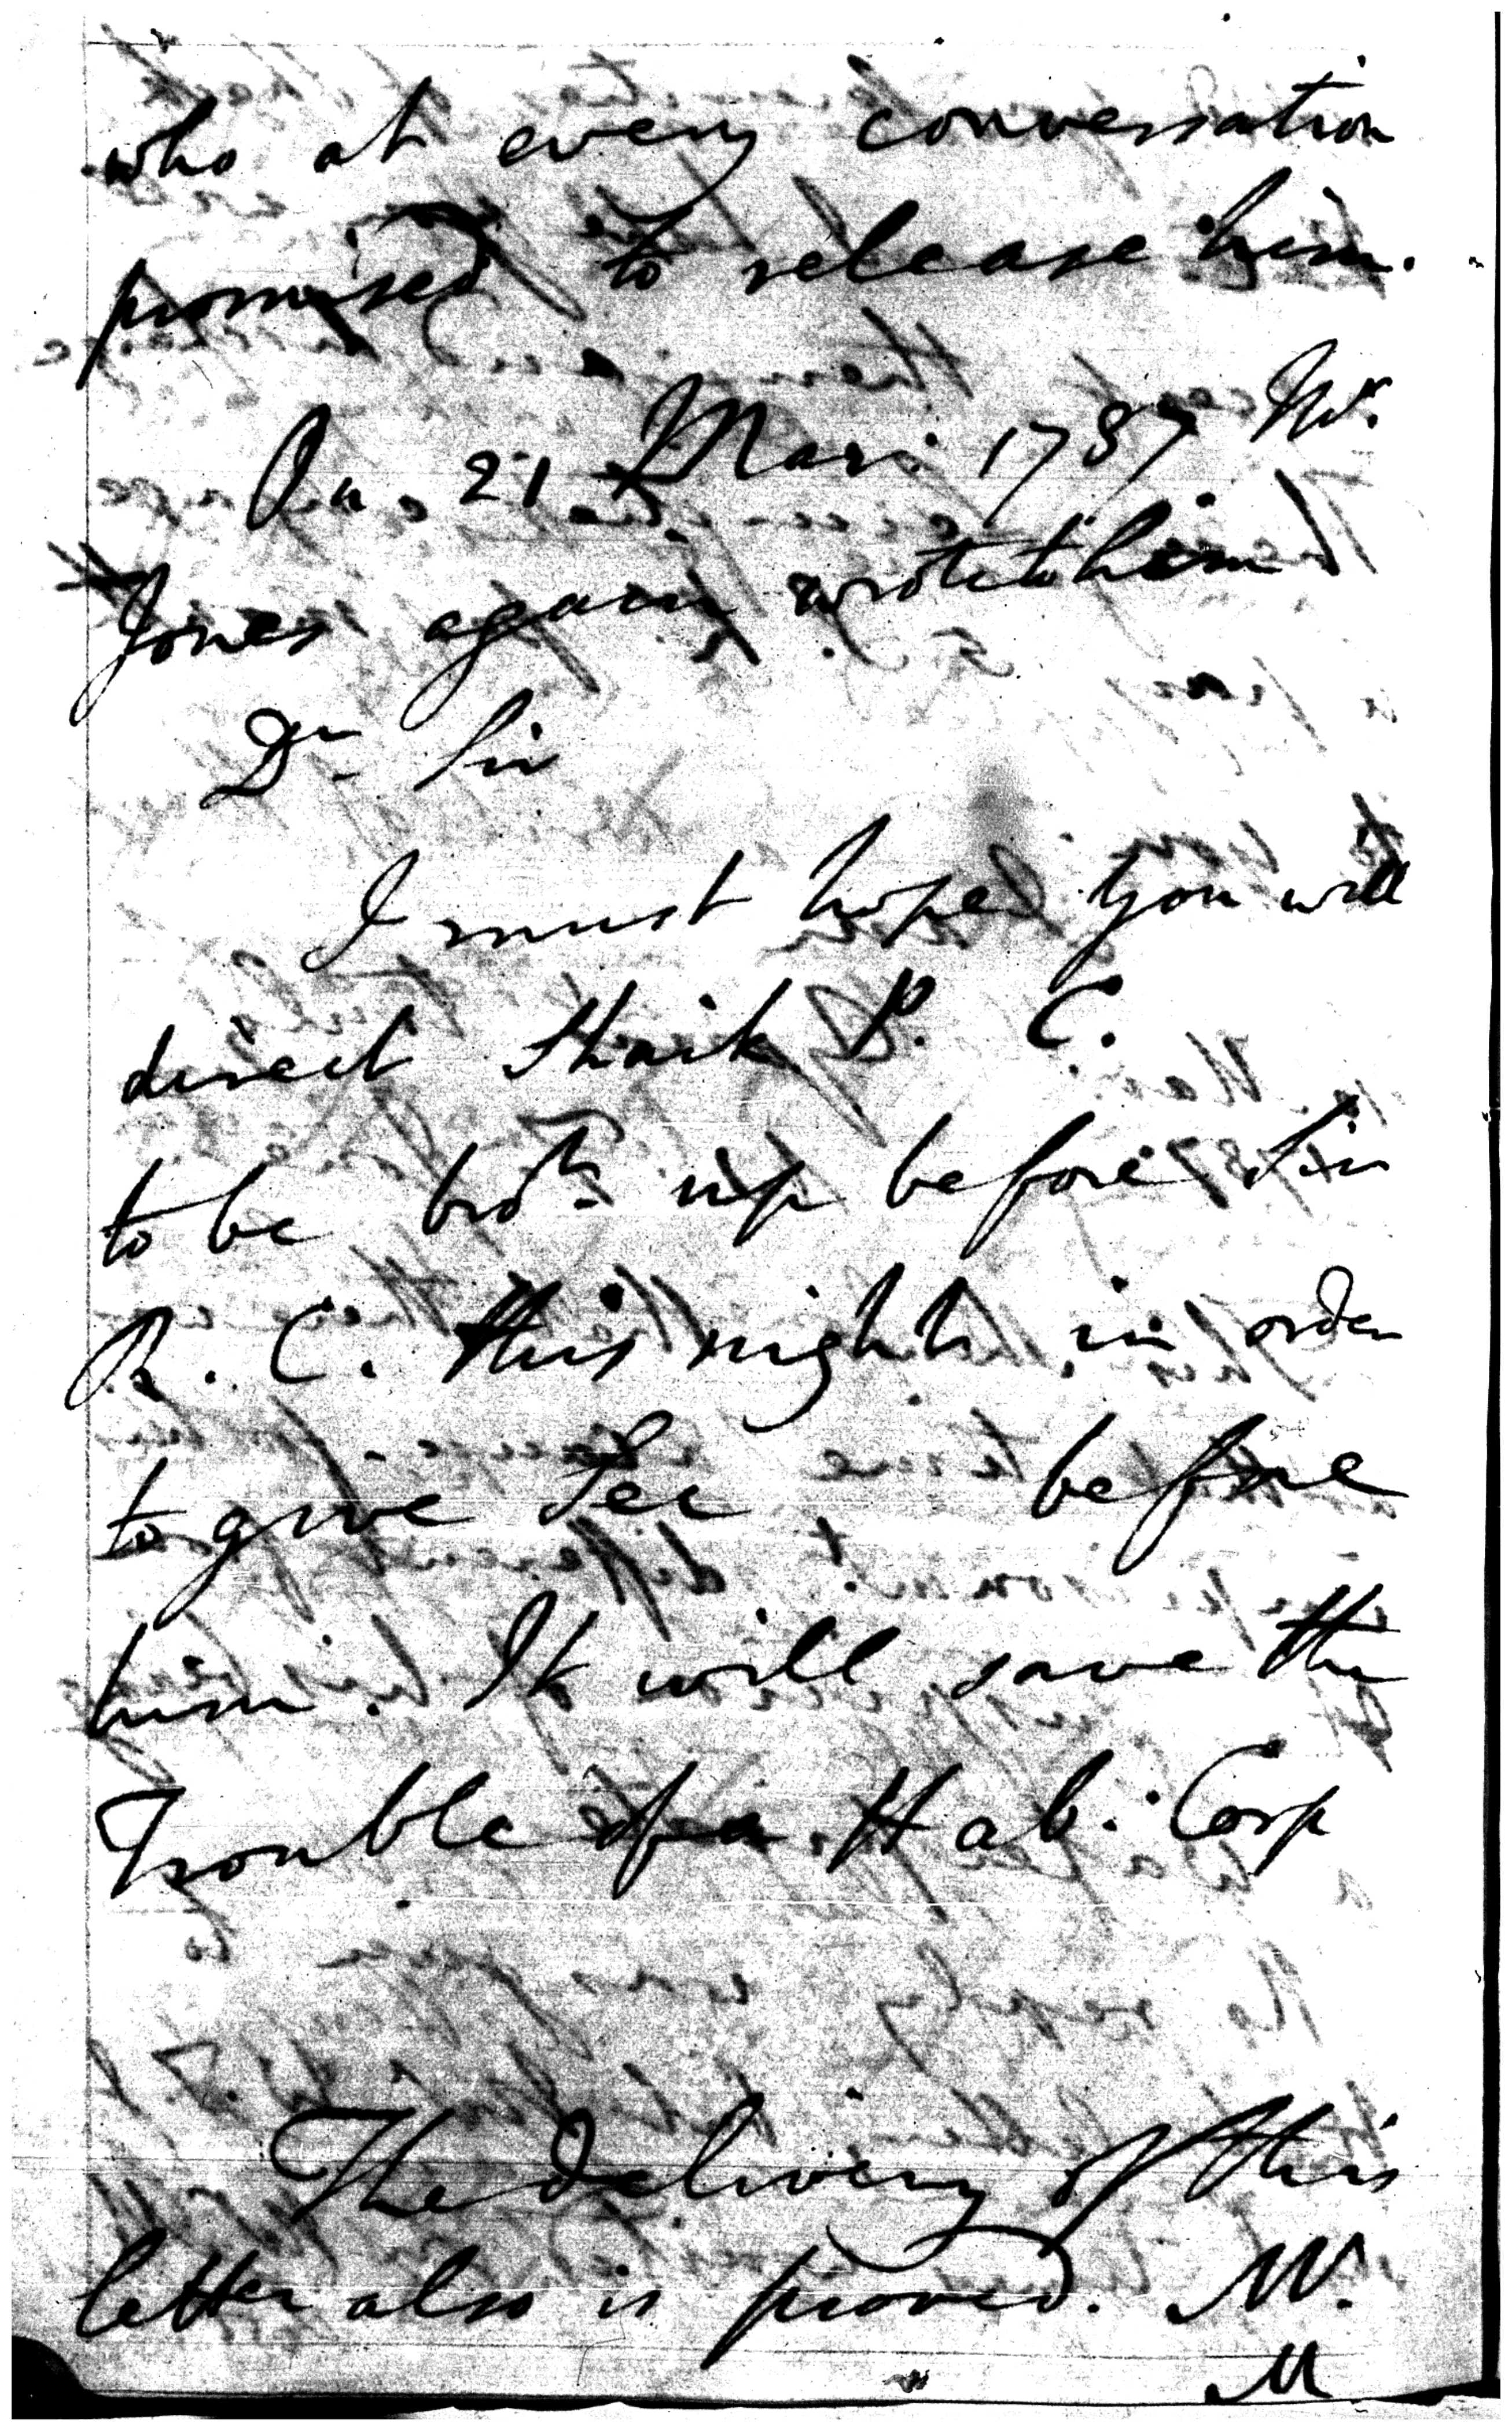 who at every conversation
promised to release him.
On. 21 Mar: 1787 Mr.
Jones again wrote to him
Dr Sir
I must hope you will
direct Shaik P. C.
to be brot up before Sir
R. C. this night, in order
to give Sec before
him. It will save the
Trouble of a Hab: Corp
The delivery of this
letter also is proved. Mr.
M